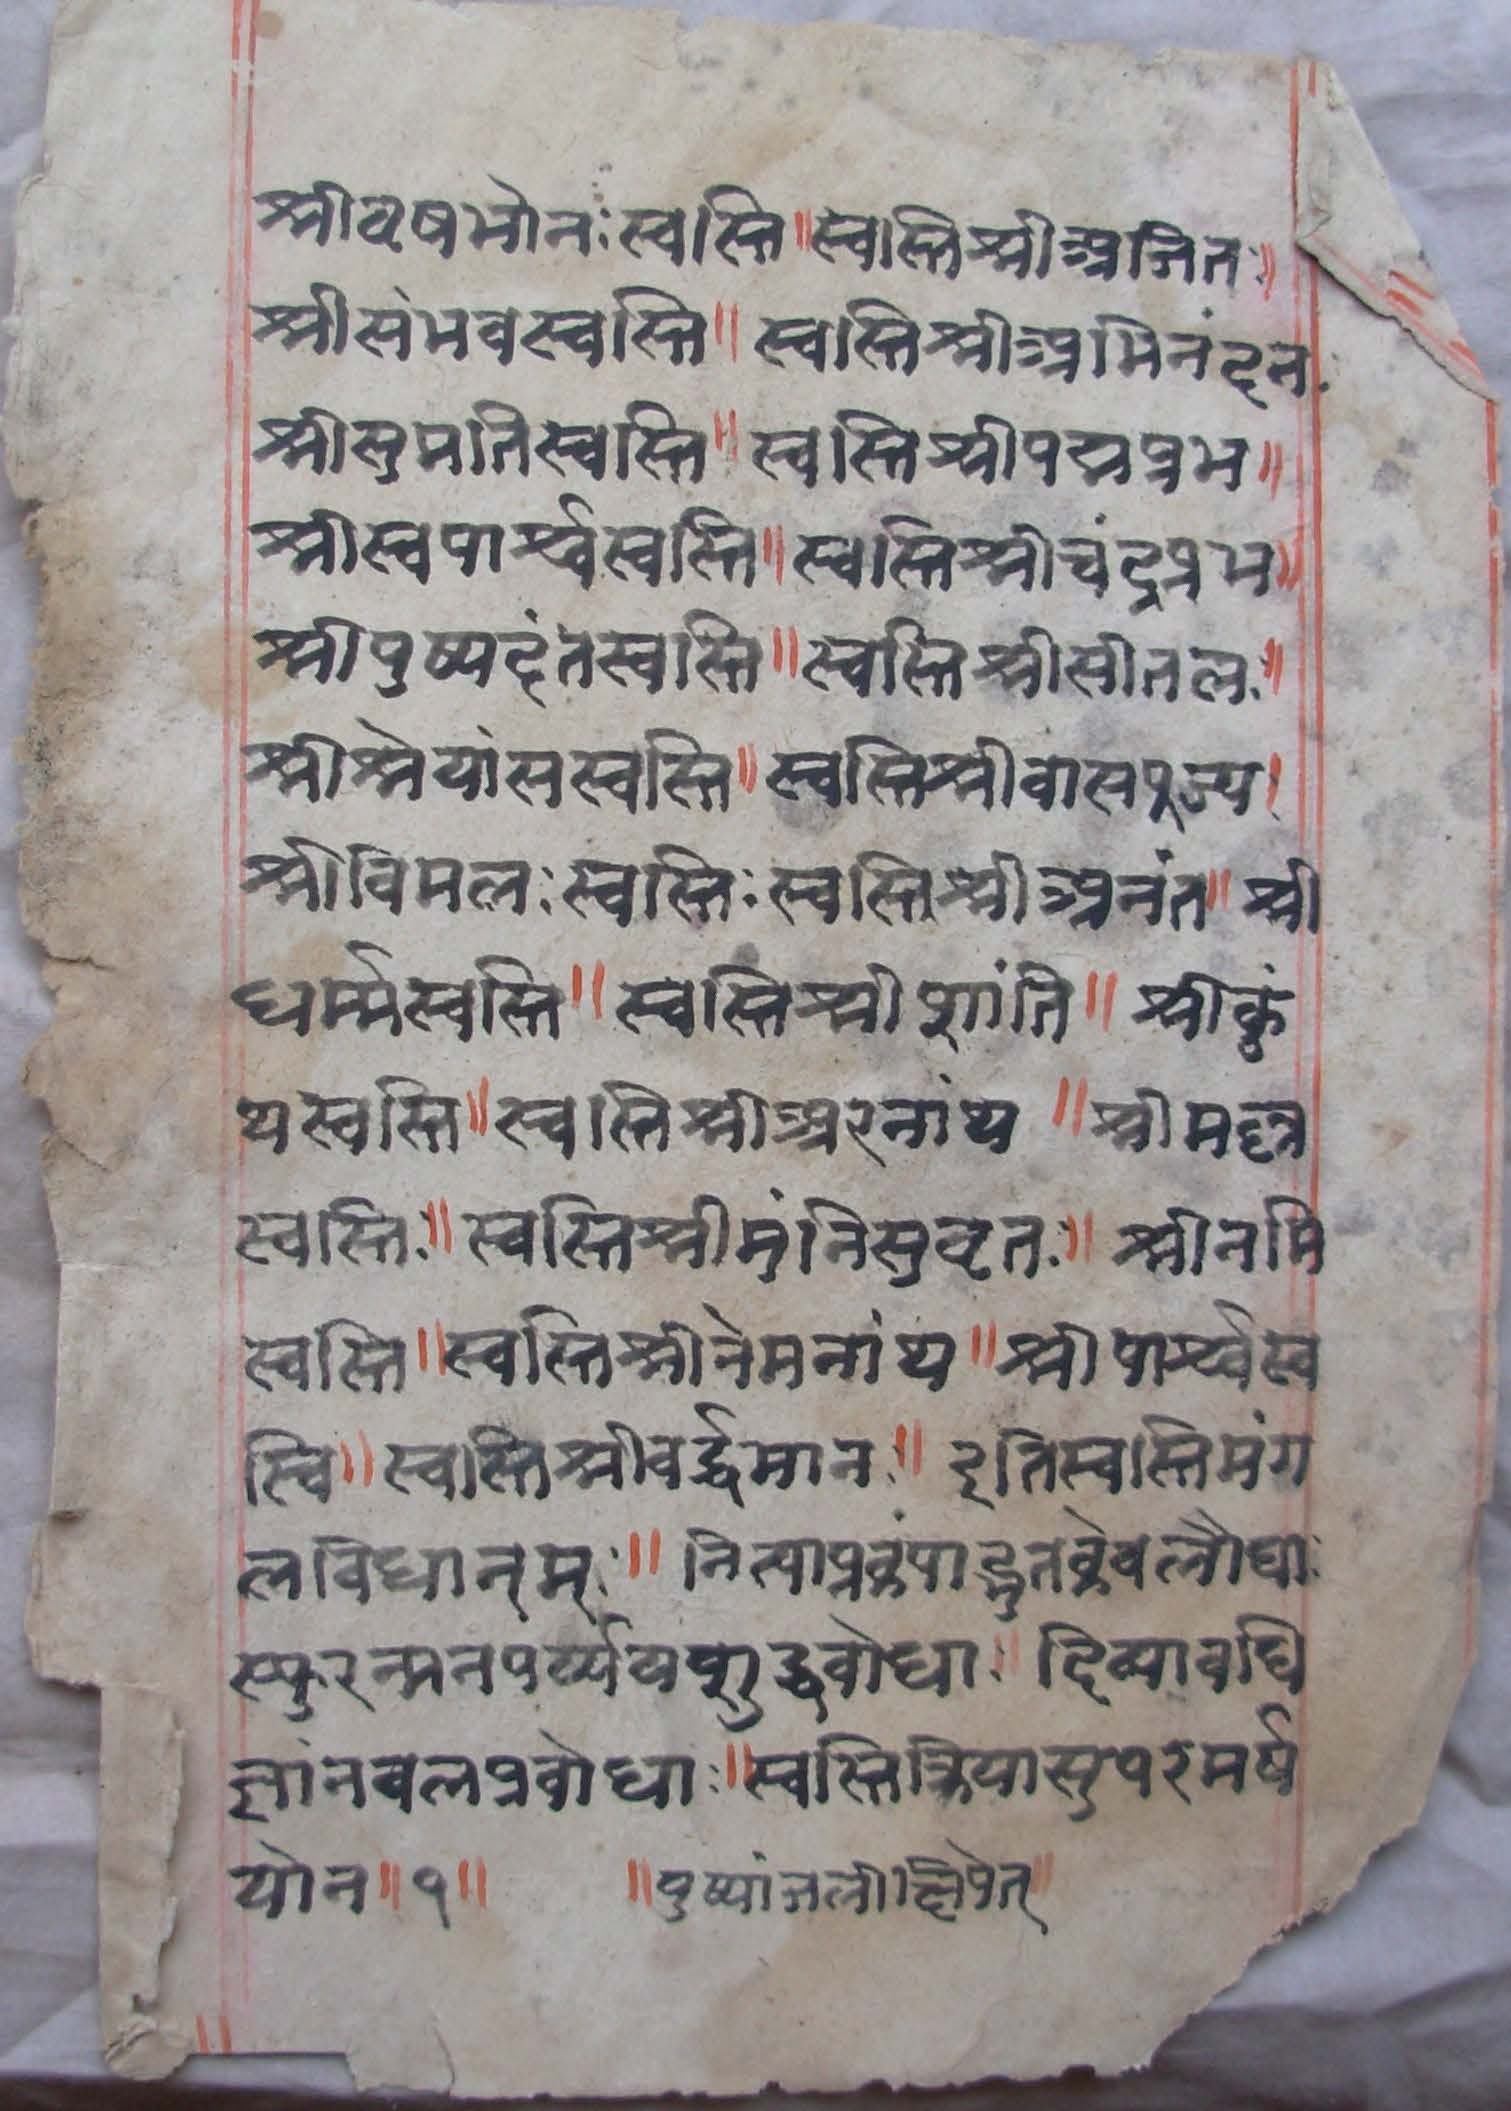 श्रीवृषभोनः स्वस्ति ॥ स्वस्ति श्रीअजितः ॥
श्रीसंभवस्वस्ति ॥ स्वस्तिश्रीअभिनंदन.
श्रीसुमतिस्वस्ति ॥ स्वस्तिश्रीपद्मप्रभ ॥
श्रीस्वपार्श्वस्वस्ति ॥ स्वस्तिश्रीचंद्रप्रभ ॥
श्रीपुष्पदंतस्वस्ति ॥ स्वस्तिश्रीसीतल. ॥
श्रीश्रेयांसस्वस्ति ॥ स्वस्तिश्रीवासपूज्य ।
श्रीविमल: स्वस्ति: स्वस्तिश्रीअनंत ॥ श्री
धर्म्मस्वस्ति ॥ स्वस्तिश्रीशांति ॥ श्रीकुं
थस्वस्ति ॥ स्वस्तिश्रीअरनांथ ॥ श्रीमल्ल
स्वस्ति. ॥ स्वस्तिश्रीमुंनिसुवृत. ॥ श्रीनमि
स्वस्ति ॥ स्वस्तिश्रीनेमनांथ ॥ श्रीपार्श्वस्व
स्वि ॥ स्वस्तिश्रीवर्द्धमान. ॥ इतिस्वस्तिमंग
लविधानम्: ॥ नित्याप्रकंपाद्भुतकेवलौघा:
स्फुरन्मनपर्य्ययशुद्धबोधा: ॥ दिव्यावधि
ज्ञांनबलप्रबोधा: ॥ स्वस्तिक्रियासुपरमर्ष
योन ॥ १ ॥ ॥ पुष्पांजलीक्षिपेत् ॥